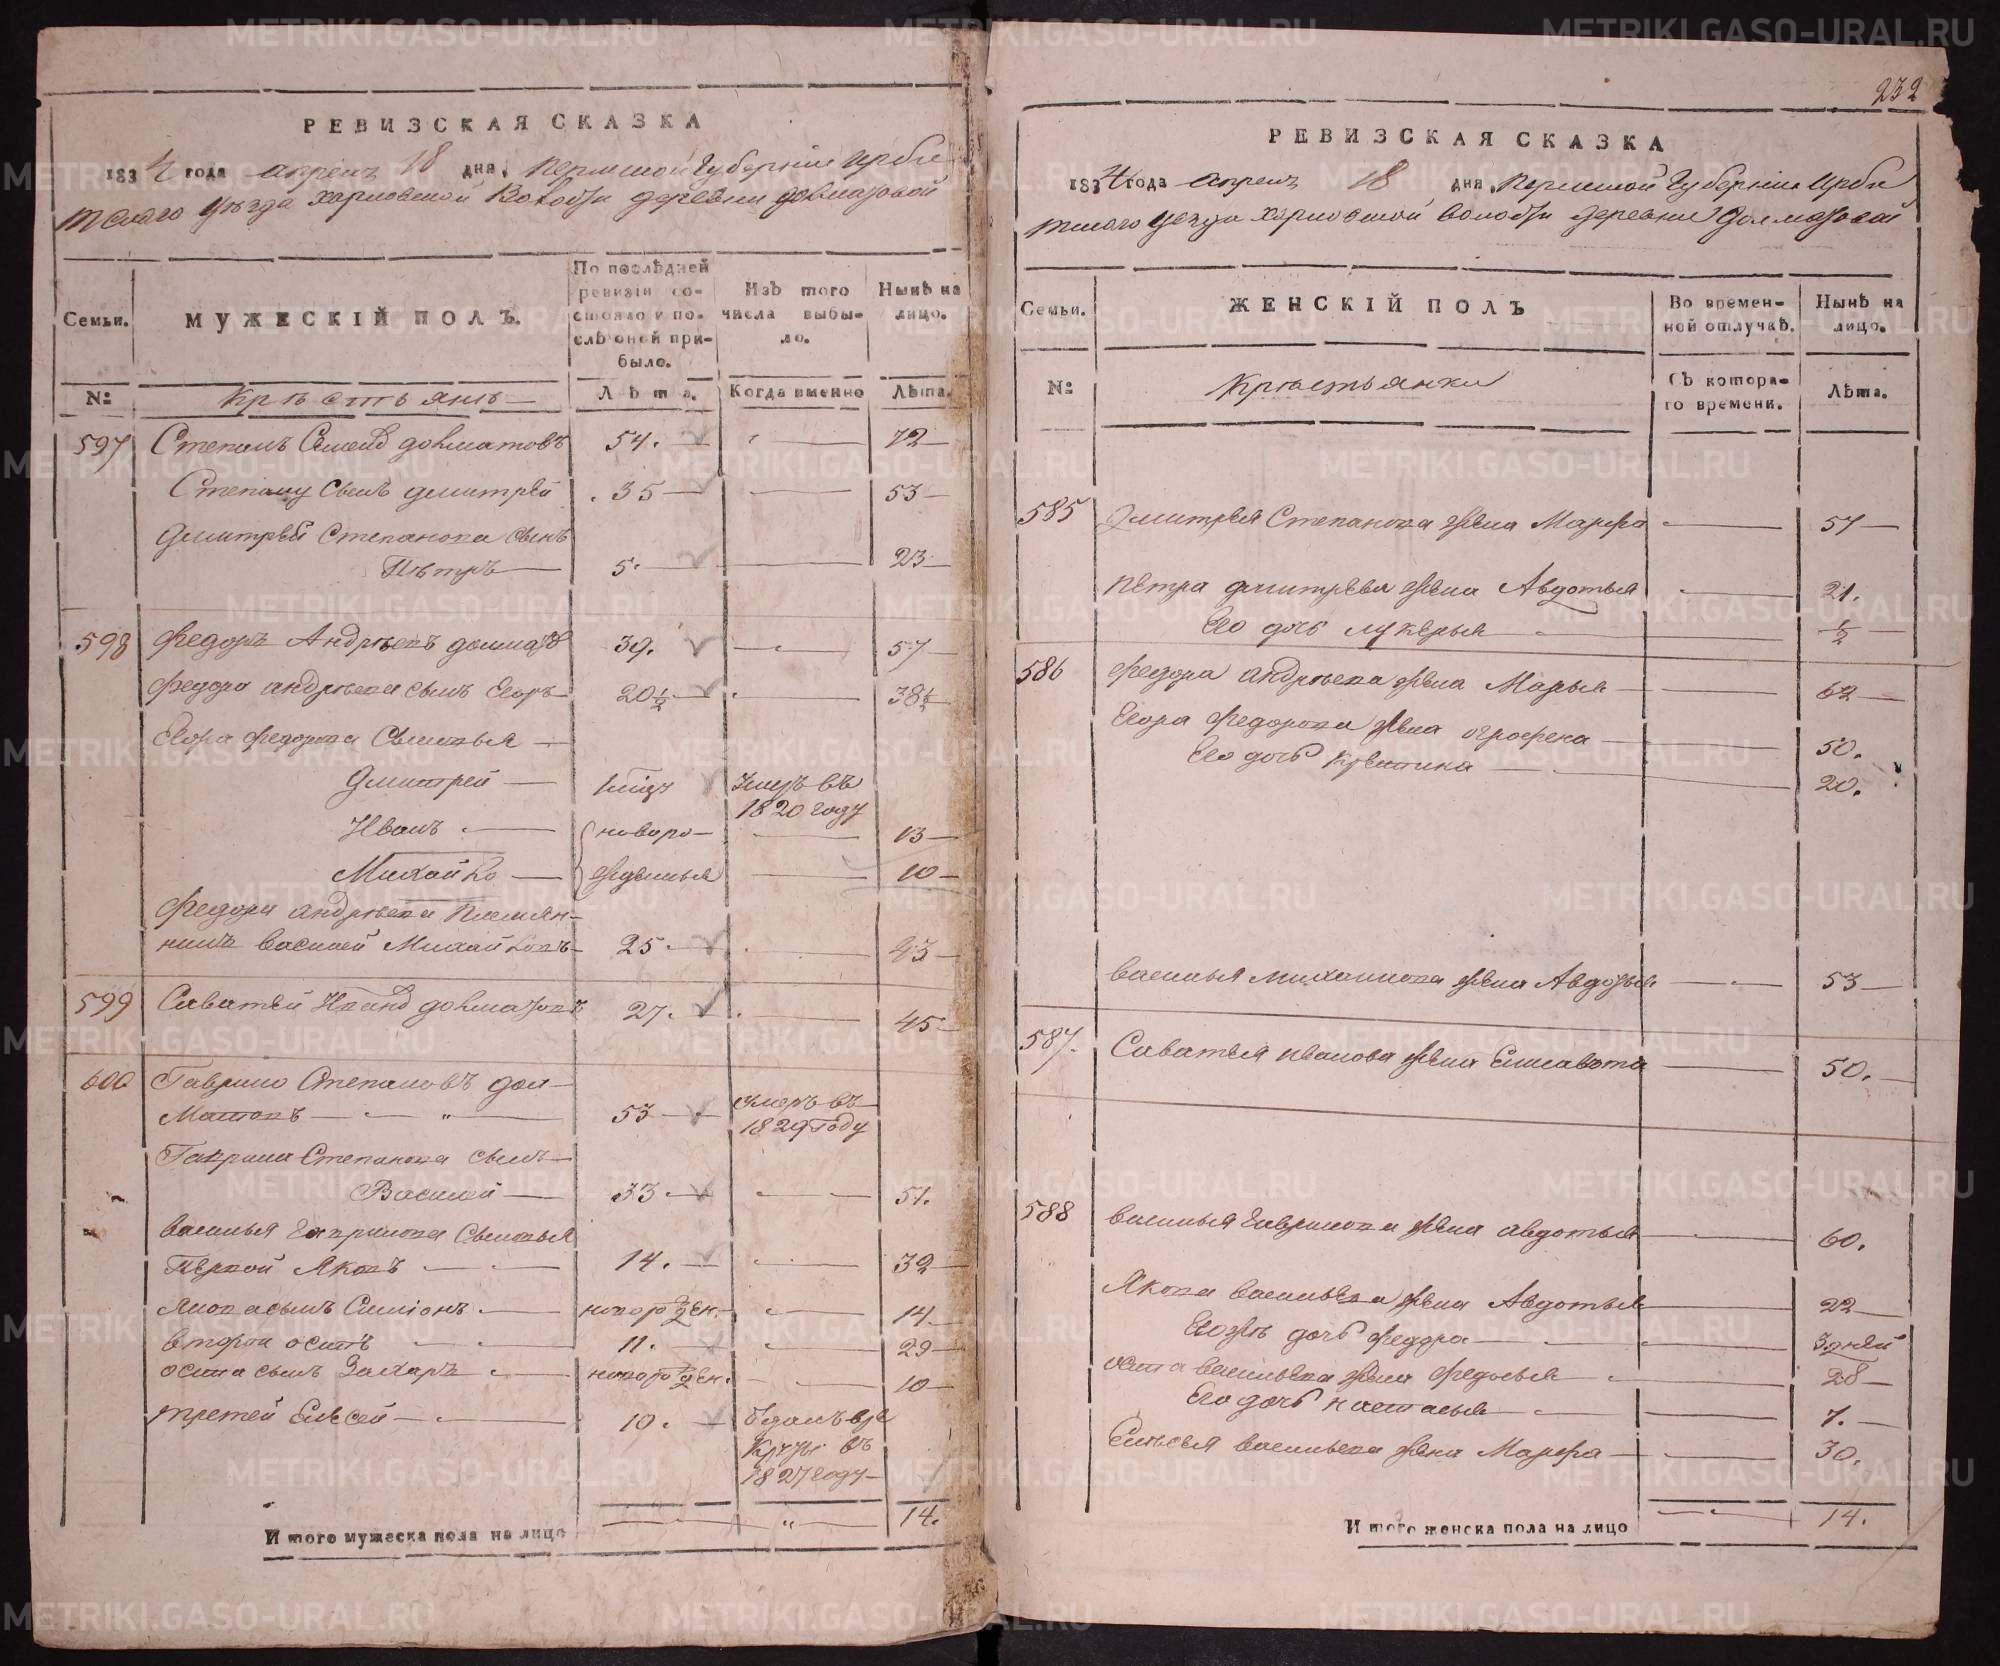 РЕВИЗСКАЯ СКАЗКА
1834 года апреля 18 дня, Пермской Губернии Ирби
тского уезда харловской Волости деревни долматовой
Семьи.
МУЖЕСКІЙ ПОЛЪ.
По послѣдней ревизіи состояло и послѣ оной прибыло.
Изъ того числа выбыло.
Нынѣ на лицо.
№
Крестьяне
Лѣта.
Когда именно
Лѣта.
597 Степанъ долматовъ 54. 72
Степану сынъ дмитрей 35 53
Дмитрей Степанова сынъ
Петръ 5. 23
598 Федоръ Андреевъ 39. 57
Федора андреева сынъ Егоръ 20½ 38½
Егора федорова Сыновья
Дмитрей умръ въ
1820 году
Иванъ новоро- 13
Михайло жденныя 10
Федора андреева племян-
никъ василей Михайловъ 25 43
599 Саватей долматовъ 27. 45
600 Гаврило Степановъ дол-
матовъ 53 умеръ въ
1829 году
Гаврила Степанова сынъ
Василей 33 51.
василья Гаврилова Сыновья
Первой Яковъ 14. 32
Якова сынъ Симіонъ 14
второй осипъ 11. 29
осипа сынъ Захаръ 10
третей Елесей 10. въ
1827 году
Итого мужеска пола на лицо 14.
232
РЕВИЗСКАЯ СКАЗКА
1834 года апреля 18 дня, Пермской Губернии Ирби
тского уезда харловской волости деревни Долматовой
Семьи.
ЖЕНСКІЙ ПОЛЪ
Во временной отлучкѣ.
Нынѣ на лицо.
№
Крестьянки
Съ котораго времени.
Лѣта.
585 Дмитрея Степанова жена Марфа 57
Петра дмитрева жена Авдотья 21.
Его дочь лукерья ½
586 Федора андреева жена Марья 62
Егора Федорова жена огрофена 50.
Его дочь 20.
василья михаилова жена Авдотья 53
587. Саватея иванова жена Елисавета 50.
588 василья гаврилова жена авдотья 60.
Якова васильева жена Авдотья 22
дочь федора 3 дней
осипа васильева жена Федосья 28
Его дочь настасья 7.
Елесея васильева жена Марфа 30.
Итого женска пола на лицо 14.
METRIKI.GASO-URAL.RU